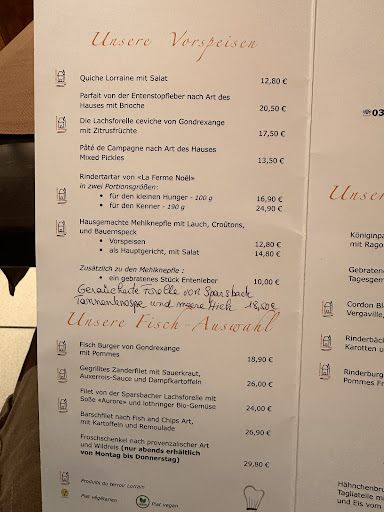 Unsere Vorspeisen
Quiche Lorraine mit Salat 12,80 €
Parfait von der Entenstopfleber nach Art des
Hauses mit Brioche 20,50 €
Die Lachsforelle ceviche von Gondrexange
mit Zitrusfrüchte 17,50 €
Pâté de Campagne nach Art des Hauses
Mixed Pickles 13,50 €
Rindertartar von «La Ferme Noël»
in zwei Portionsgrößen:
• für den kleinen Hunger - 100 g 16,90 €
• für den Kenner - 190 g 24,90 €
Hausgemachte Mehlknepfle mit Lauch, Croûtons,
und Bauernspeck
• Vorspeisen 12,80 €
• als Hauptgericht, mit Salat 14,80 €
Zusätzlich zu den Mehlknepfle :
• ein gebratenes Stück Entenleber 10,00 €
Geräucherte Forelle von Sparsbach
Tannenknospe und 18,50€
Unsere Fisch-Auswahl
Fisch Burger von Gondrexange
mit Pommes 18,90 €
Gegrilltes Zanderfilet mit Sauerkraut,
Auxerrois-Sauce und Dampfkartoffeln 26,00 €
Filet von der Sparsbacher Lachsforelle mit
Soße «Aurore» und lothringer Bio-Gemüse 24,00 €
Barschfilet nach Fish and Chips Art,
mit Kartoffeln und Remoulade 26,90 €
Froschschenkel nach provenzalischer Art
und Wildreis (nur abends erhältlich
von Montag bis Donnerstag) 29,80 €
Produits du terroir Lorrain
Plat végétarien
Plat vegan
03
Unser
Königinpa
mit Rago
Gebratene
Tagesgem
Cordon Bl
Vergaville,
Rinderbäck
Karotten u
Rinderburg
Pommes Fr
Hähnchenbru
Tagliatelle m
und Eis vom